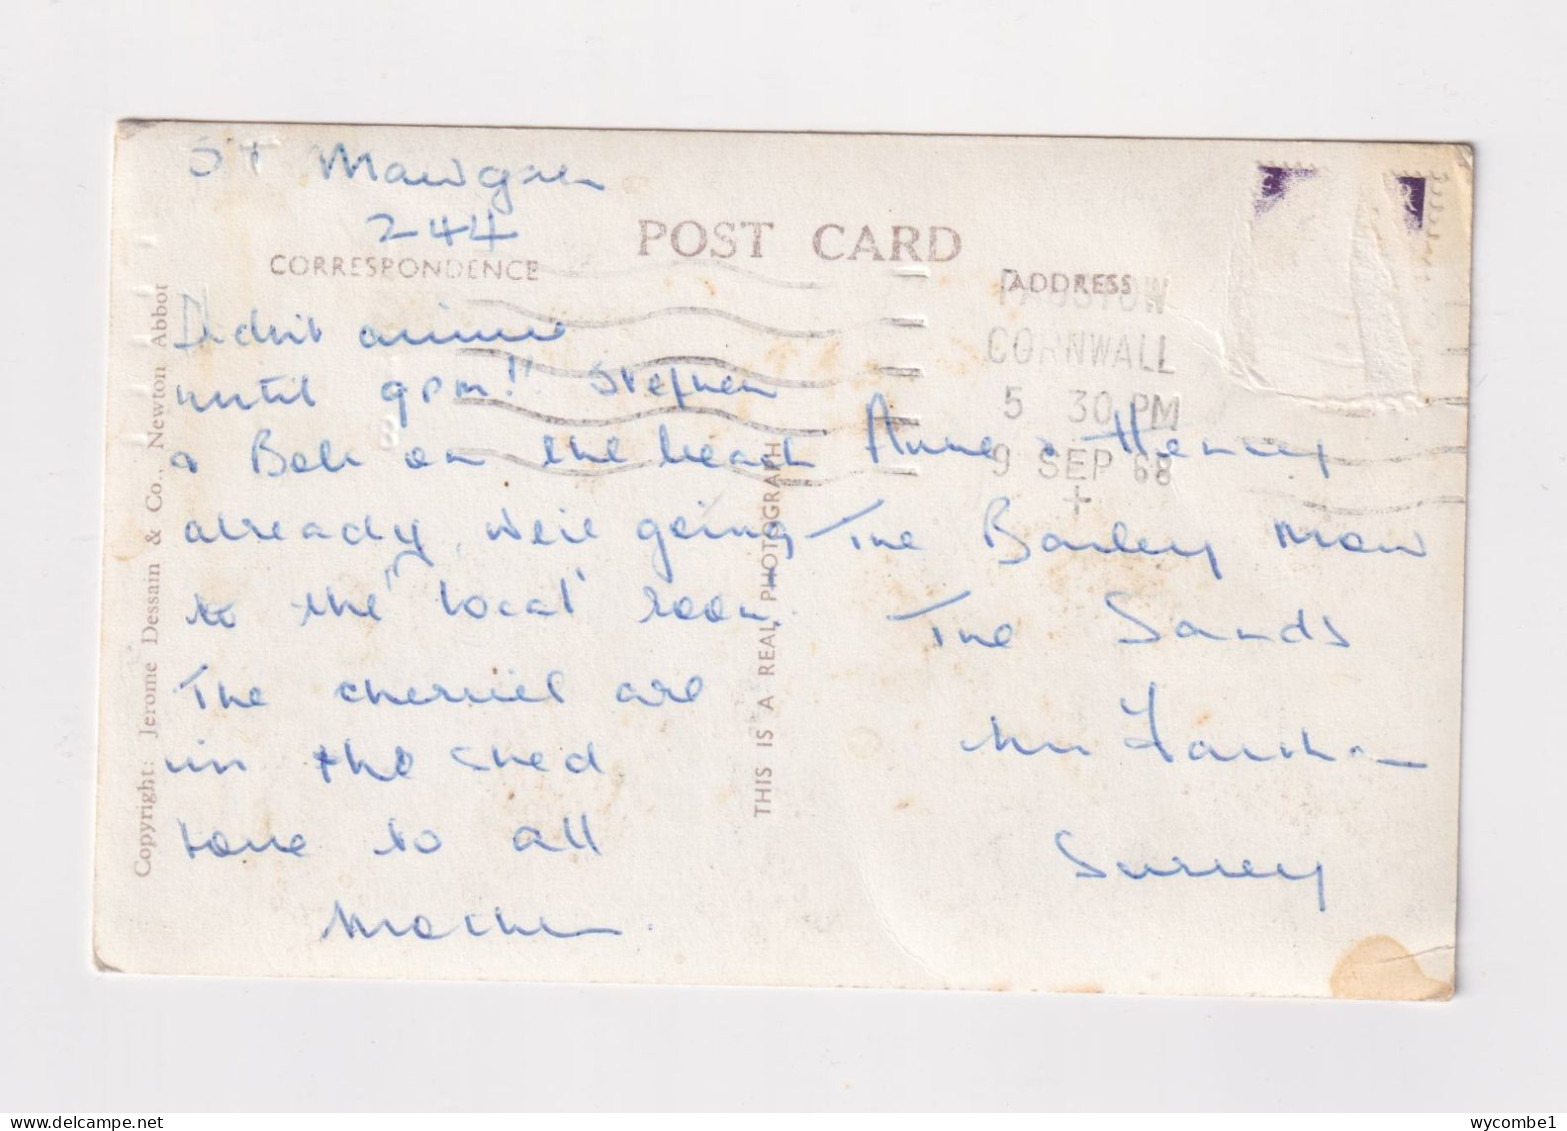 St Mawgan
244
POST CARD
CORRESPONDENCE
ADDRESS
Didn't arrive
until 9pm!! Stephen
& Bob on the beach
already, we're going
to the 'local' soon.
The cherries are
in the shed
Love to all
Mother.
PADSTOW
CORNWALL
5 30 PM
9 SEP 68
Anne & Henry
The Barley Mow
The Sands
Nr. Farnham
Surrey
THIS IS A REAL PHOTOGRAPH
Copyright: Jerome Dessain & Co., Newton Abbot
wycombe1